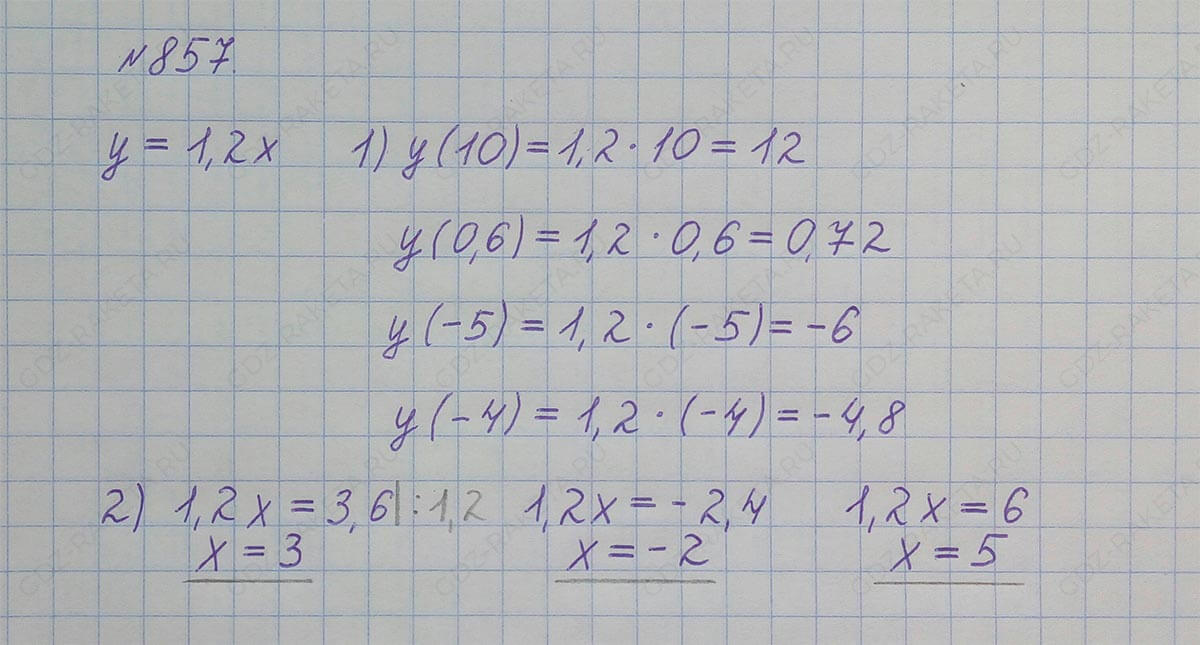 №857.
y = 1,2x 1) y(10) = 1,2 · 10 = 12
y(0,6) = 1,2 · 0,6 = 0,72
y(-5) = 1,2 · (-5) = -6
y(-4) = 1,2 · (-4) = -4,8
2) 1,2x = 3,6 |:1,2 1,2x = -2,4 1,2x = 6
x = 3 x = -2 x = 5
GDZ-RAKETA.RU